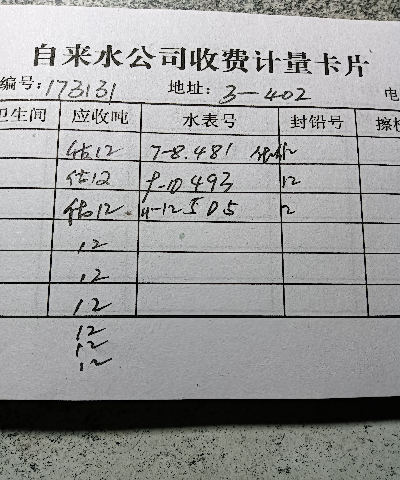 自来水公司收费计量卡片
编号:173131 地址: 3-402 电
卫生间 应收吨 水表号 封铅号 擦
估12 7-8.481 12
估12 9-10 493 12
估12. 11-12 505 12
12
12
12
12
12
12